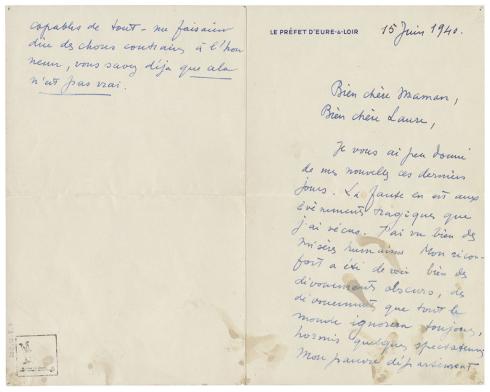 capables de tout – me faisaient
dire des choses contraires à l'hon
neur, vous savez déjà que cela
n'est pas vrai.
LE PRÉFET D'EURE-&-LOIR
15 Juin 1940.
Bien chère Maman,
Bien chère Laure,
Je vous ai peu donné
de mes nouvelles ces derniers
jours. La faute en est aux
évènements tragiques que
j'ai vécus. J'ai vu bien des
misères humaines. Mon récon-
fort a été de voir bien des
dévouements obscurs, des
dévouements que tout le
monde ignorera toujours,
hormis quelques spectateurs.
Mon pauvre département